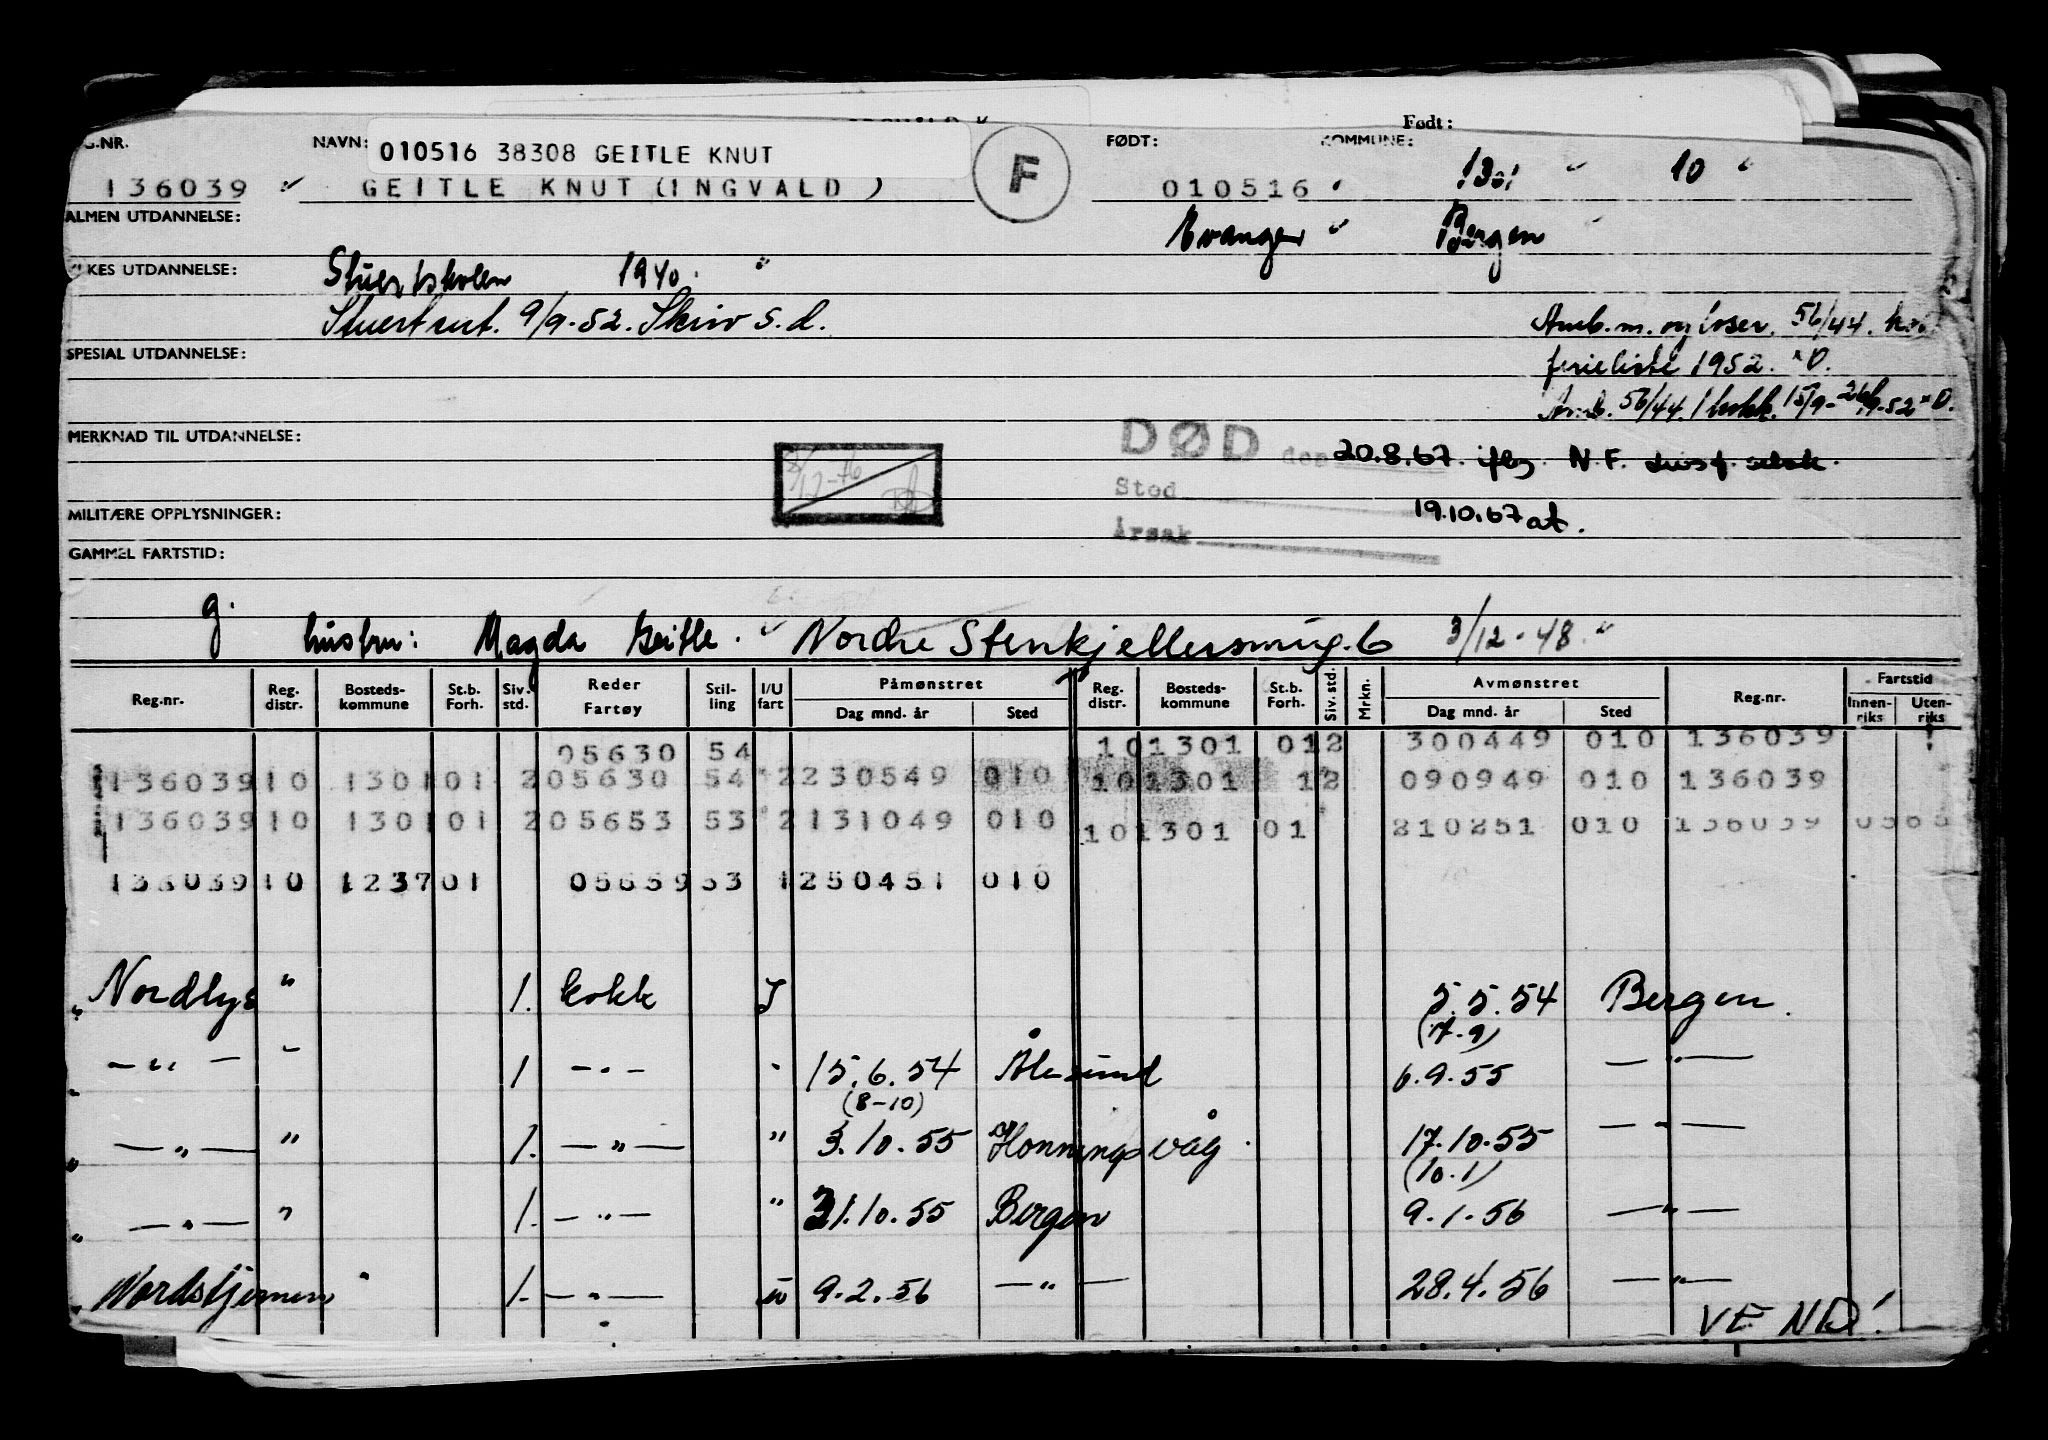 Født:
G.NR. NAVN: 010516 38308 GEITLE KNUT F FØDT: KOMMUNE:
136039 GEITLE KNUT (INGVALD) 010516 1301 10
ALMEN UTDANNELSE: Evanger Bergen
KES UTDANNELSE: Stuertskolen 1940.
Stuert sert. 9/9-52. Skriv s.d. Anb. m. og loser. 56/44.
SPESIAL UTDANNELSE: ferieliste 1952. D.
Anb. 56/44 1 kokk. 15/9-
MERKNAD TIL UTDANNELSE: DØD den 20.8.67. iflg. N.F.
8/12-76
Sted
MILITÆRE OPPLYSNINGER: 19.10.67 at.
Årsak
GAMMEL FARTSTID:
g.
hustru: Magda Geitle. Nordre Stenkjellersmug. 6 3/12-48.
Reg.nr. Reg. distr. Bosteds-kommune St.b. Forh. Siv. std. Reder Fartøy Stil-ling I/U fart Påmønstret Dag mnd. år Sted Reg. distr. Bosteds-kommune St.b. Forh. Siv. std. Mrkn. Avmønstret Dag mnd. år Sted Reg.nr. Fartstid Innen-riks Uten-riks
05630 54 10 1301 01 2 300449 010 136039
136039 10 1301 01 2 05630 54 2 230549 010 10 1301 1 2 090949 010 136039
136039 10 1301 01 2 05653 53 2 131049 010 10 1301 01 210251 010 136039
136039 10 1237 01 05659 53 1 250451 010
Nordlys " 1. kokk I 5.5.54 Bergen.
(17-9)
— " — " 1 — " — " 15.6.54 Ålesund 6.9.55 — " —
(8-10)
— " — " 1. — " — " 3.10.55 Honningsvåg. 17.10.55 — " —
(10.1)
— " — " 1. — " — " 31.10.55 Bergen 9.1.56 — " —
Nordstjernen " 1. — " — u 9.2.56 — " — 28.4.56 — " —
VEND!